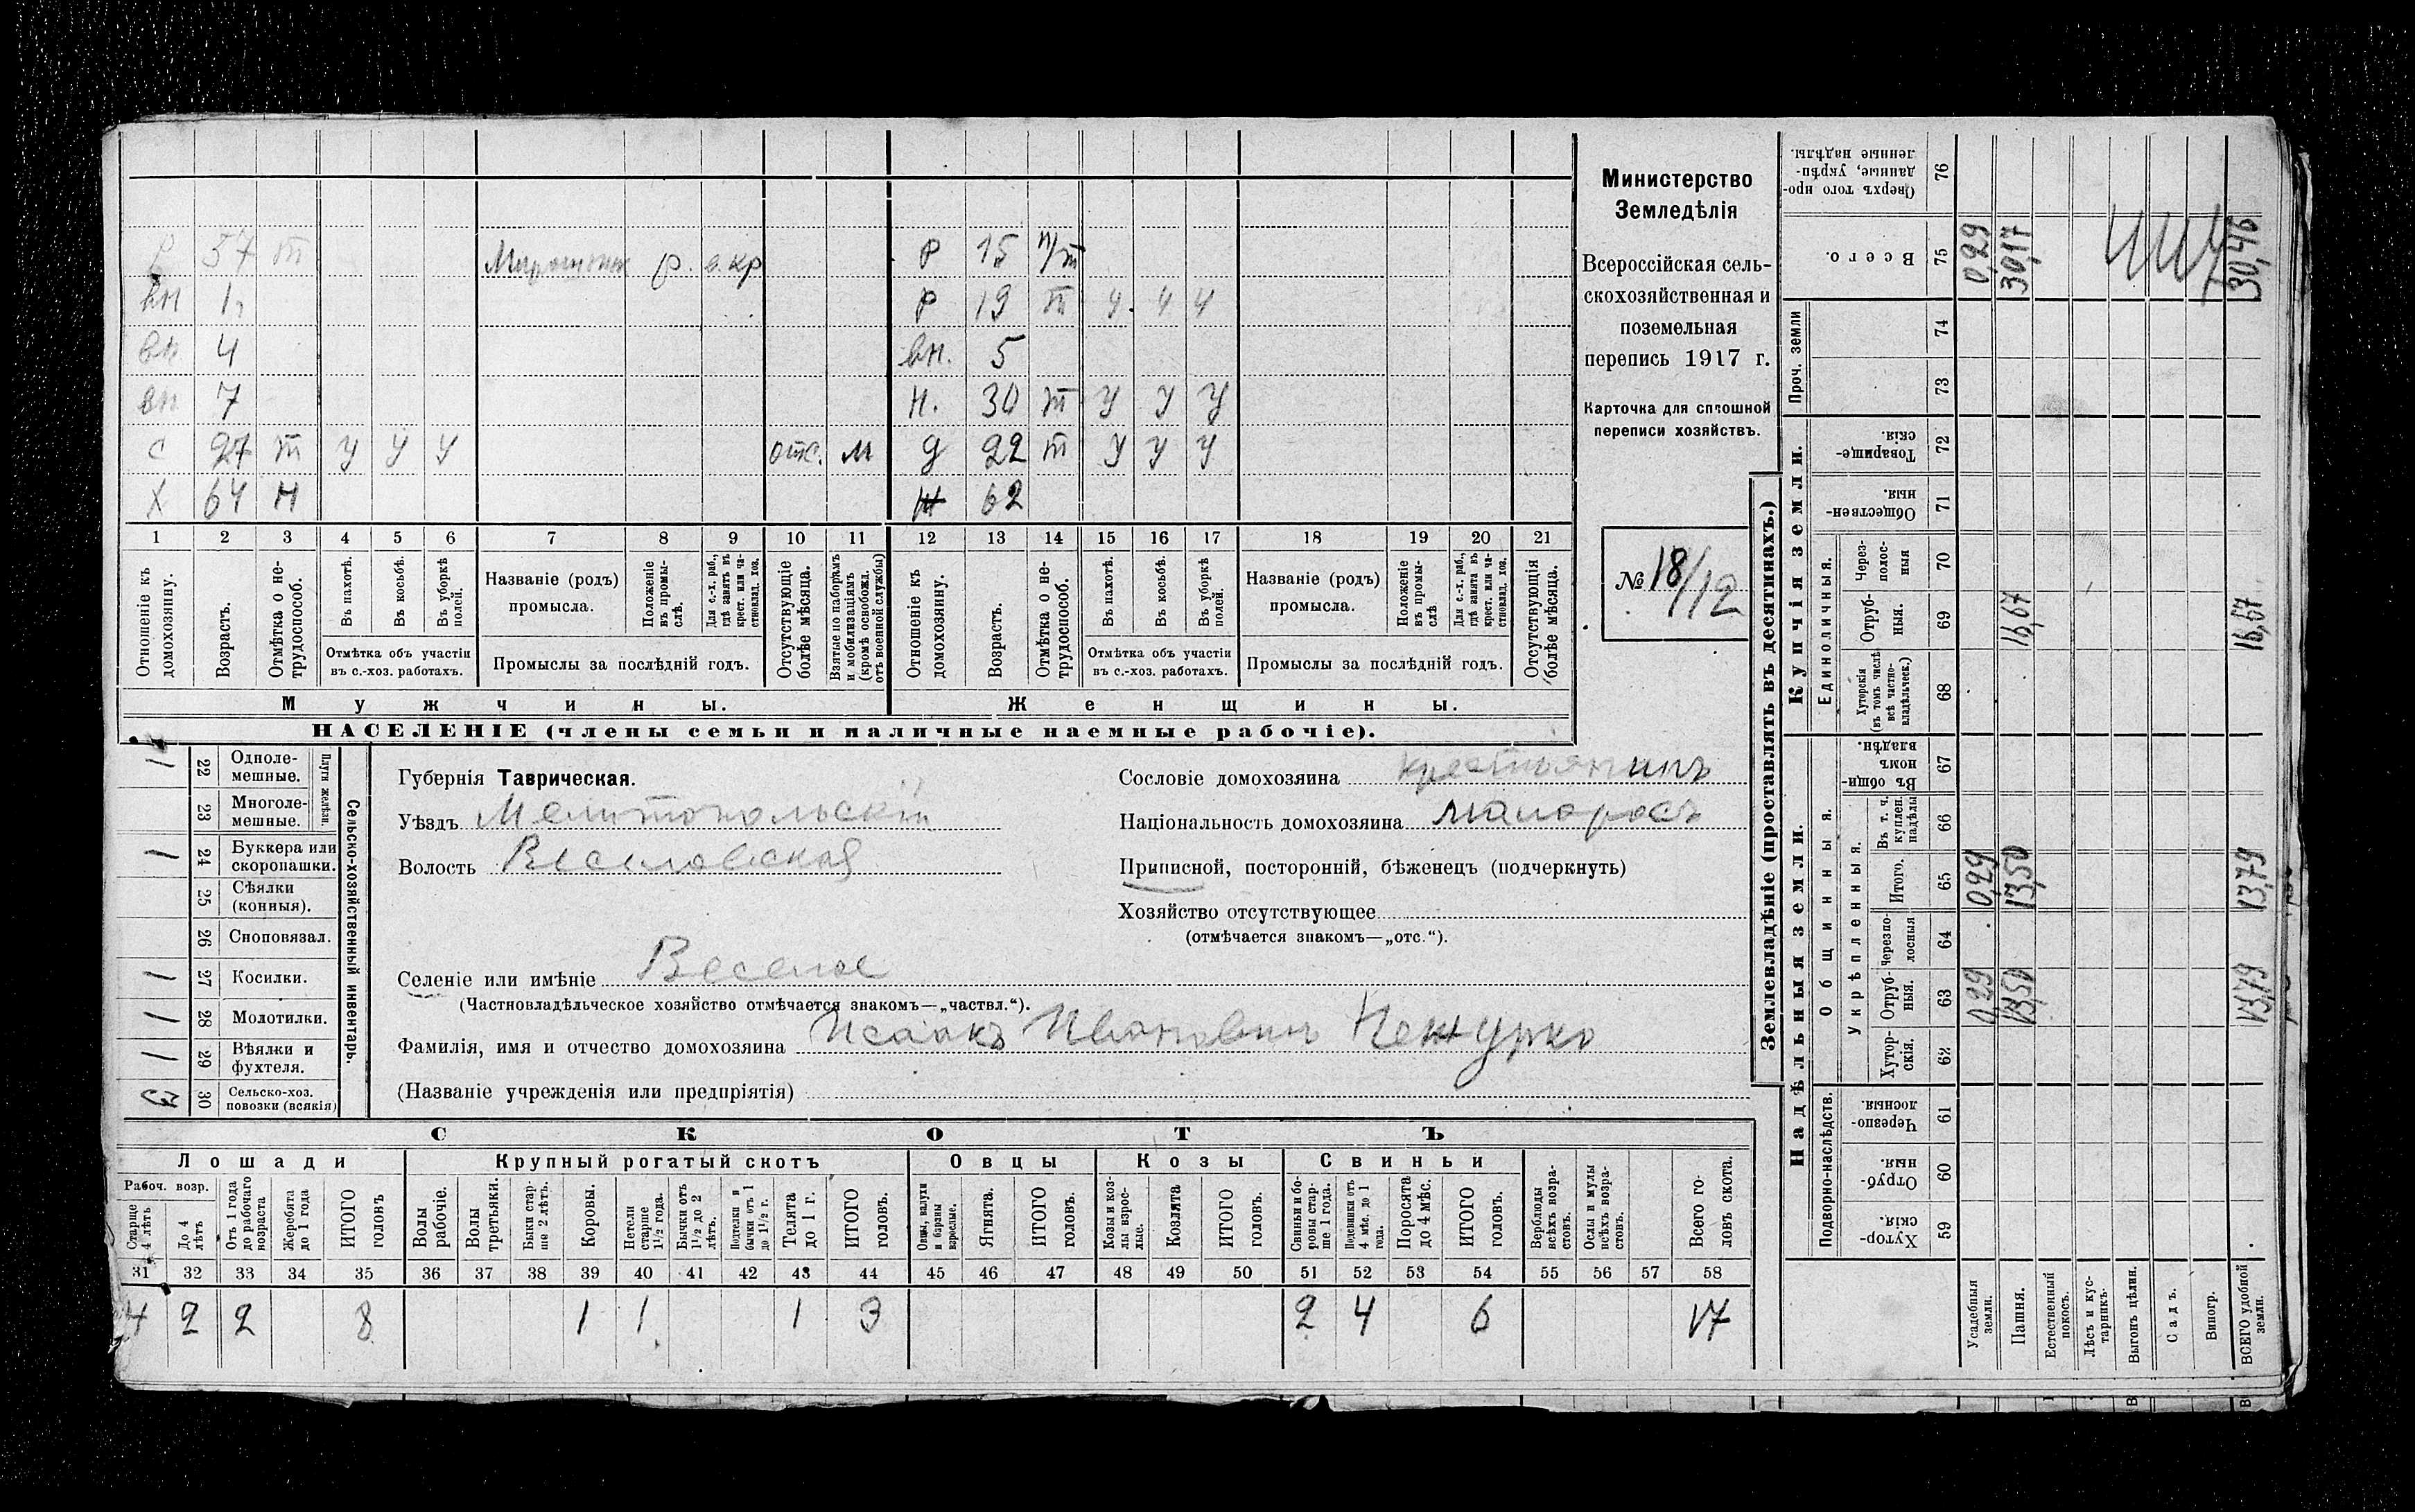 Министерство
Земледѣлія
Всероссійская сель-
скохозяйственная и
поземельная
перепись 1917 г.
Карточка для сплошной
переписи хозяйствъ.
№ 18/12
Р 57 т р. в. кр Р 15 п/т
вн 1 Р 19 т У У У
вн 4 вн. 5
вн 7 Н. 30 т У У У
с 27 т У У У отс. м д 22 т У У У
Х 64 н 62
1 2 3 4 5 6 7 8 9 10 11 12 13 14 15 16 17 18 19 20 21
Отношеніе къ домохозяину.
Возрастъ.
Отмѣтка о не-трудоспособ.
Въ пахотѣ.
Въ косьбѣ.
Въ уборкѣ полей.
Отмѣтка объ участіи
въ с.-хоз. работахъ.
Названіе (родъ)
промысла.
Положеніе въ промы-слѣ.
Для с.-х. раб., гдѣ занятъ въ крест. или ча-стновлад. хоз.
Промыслы за послѣдній годъ.
Отсутствующіе болѣе мѣсяца.
Взятые по наборамъ и мобилизаціямъ (кромѣ освобожд. отъ военной службы)
Отношеніе къ домохозяину.
Возрастъ.
Отмѣтка о не-трудоспособ.
Въ пахотѣ.
Въ косьбѣ.
Въ уборкѣ полей.
Отмѣтка объ участіи
въ с.-хоз. работахъ.
Названіе (родъ)
промысла.
Положеніе въ промы-слѣ
Для с.-х. раб., гдѣ занята въ крест. или ча-стновлад. хоз.
Промыслы за послѣдній годъ.
Отсутствующія болѣе мѣсяца.
Мужчины. Женщины.
НАСЕЛЕНІЕ (члены семьи и наличные наемные рабочіе).
Сельско-хозяйственный инвентарь.
Плуги желѣзн.
1 22 Одноле-мешные.
23 Многоле-мешные.
1 24 Буккера или скоропашки.
25 Сѣялки (конныя).
26 Сноповязал.
1 27 Косилки.
1 28 Молотилки.
1 29 Вѣялки и фухтеля.
3 30 Сельско-хоз. повозки (всякія)
Губернія Таврическая.
Уѣздъ Мелитопольскій
Волость Веселовская
Сословіе домохозяина крестьянинъ
Національность домохозяина малороссъ
Приписной, посторонній, бѣженецъ (подчеркнуть)
Хозяйство отсутствующее
(отмѣчается знакомъ—„отс.“).
Селеніе или имѣніе Веселое
(Частновладѣльческое хозяйство отмѣчается знакомъ—„частвл.“).
Фамилія, имя и отчество домохозяина Исаакъ Ивановичъ Нежурко
(Названіе учрежденія или предпріятія)
СКОТЪ
Лошади Крупный рогатый скотъ Овцы Козы Свиньи
Рабоч. возр.
Старше 4 лѣтъ
До 4 лѣтъ
Отъ 1 года до рабочаго возраста
Жеребята до 1 года
ИТОГО головъ
Волы рабочіе.
Волы третьяки.
Быки стар-ше 2 лѣтъ.
Коровы.
Нетели старше 1 1/2 года.
Бычки отъ 1 1/2 до 2 лѣтъ.
Подтелки и бычки отъ 1 до 1 1/2 г.
Телята до 1 г.
ИТОГО головъ.
Овцы, валухи и бараны взрослые.
Ягнята.
ИТОГО головъ.
Козы и коз-лы взрос-лые.
Козлята
ИТОГО головъ.
Свиньи и бо-ровы стар-ше 1 года.
Подсвинки отъ 4 мѣс. до 1 года.
Поросята до 4 мѣс.
ИТОГО головъ.
Верблюды всѣхъ возра-стовъ.
Ослы и мулы всѣхъ возра-стовъ.
Всего го-ловъ скота.
31 32 33 34 35 36 37 38 39 40 41 42 43 44 45 46 47 48 49 50 51 52 53 54 55 56 57 58
4 2 2 8 1 1 1 3 2 4 6 17
Землевладѣніе (проставлять въ десятинахъ.)
Надѣльныя земли. Купчія земли. Проч. земли
Подворно-наслѣдств.
Общинныя.
Укрѣпленныя.
Единоличныя.
Хутор-скія. 59
Отруб-ныя. 60
Черезпо-лосныя. 61
Хутор-скія. 62
Отруб-ныя. 63 0,29 13,50 13,79
Черезпо-лосныя 64
Итого. 65 0,29 13,50 13,79
Въ т. ч. куплен. надѣлы 66
Въ общин-номъ владѣн. 67
Хуторскія (въ томъ числѣ всѣ частно-владѣльческ.) 68
Отруб-ныя. 69 16,67 16,67
Через-полос-ныя 70
Обществен-ныя. 71
Товарище-скія. 72
73
74
Всего. 75 0,29 30,17 30,46
Сверхъ того про-данные, укрѣп-ленные надѣлы. 76
Усадебныя земли.
Пашня.
Естественный покосъ.
Лѣсъ и кус-тарникъ.
Выгонъ цѣлин.
Садъ.
Виногр.
ВСЕГО удобной земли.